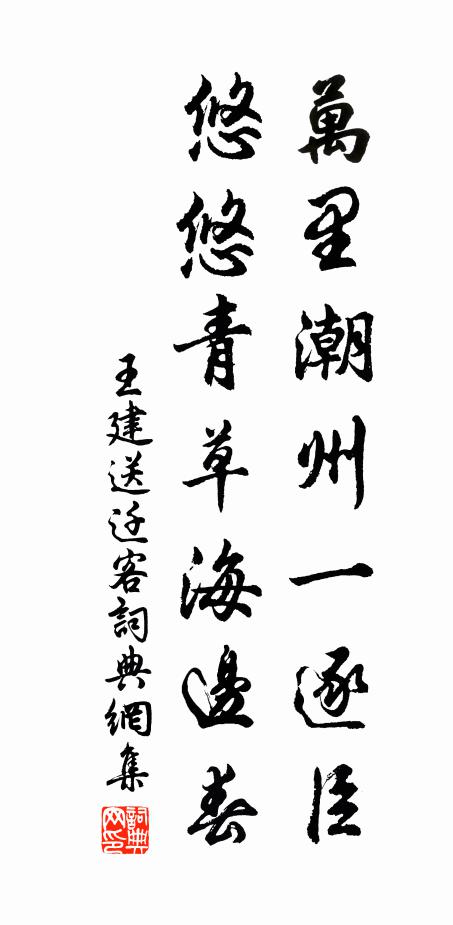 萬里潮州一逐臣
悠悠青草海邊春
王建送迁客詞典網集
詞典网印